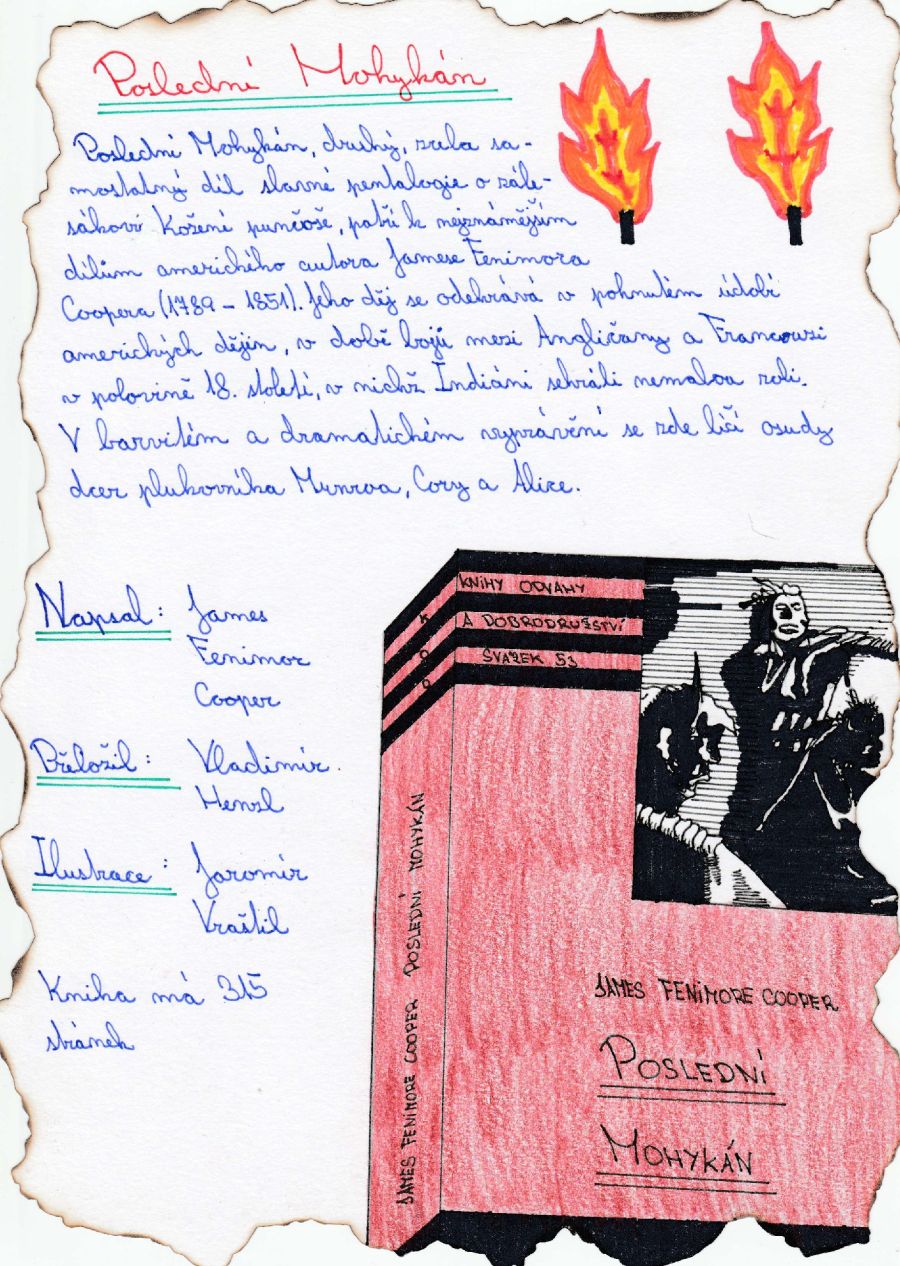 Poslední Mohykán
Poslední Mohykán, druhý, zcela sa-
mostatný díl slavné pentalogie o zále-
sákovi Kožení punčoše, patří k nejznámějším
dílům amerického autora Jamese Fenimora
Coopera (1789 – 1851). Jeho děj se odehrává v pohnutém údobí
amerických dějin, v době bojů mezi Angličany a Francouzi
v polovině 18. století, v nichž Indiáni sehráli nemalou roli.
V barvitém a dramatickém vyprávění se zde líčí osudy
dcer plukovníka Munroa, Cory a Alice.
Napsal: James
Fenimor
Cooper
Přeložil: Vladimír
Henzl
Ilustrace: Jaromír
Vraštil
Kniha má 315
stránek
KNIHY ODVAHY
A DOBRODRUŽSTVÍ
SVAZEK 53
K
O
D
JAMES FENIMORE COOPER POSLEDNÍ MOHYKÁN
JAMES FENIMORE COOPER
POSLEDNÍ
MOHYKÁN